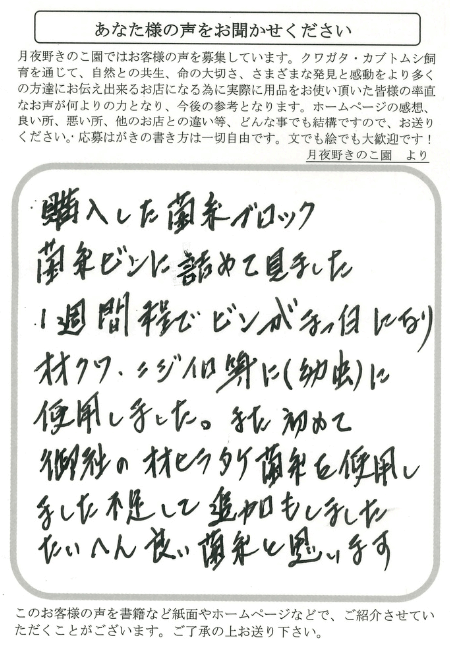 あなた様の声をお聞かせください
月夜野きのこ園ではお客様の声を募集しています。クワガタ・カブトムシ飼
育を通じて、自然との共生、命の大切さ、さまざまな発見と感動をより多く
の方達にお伝え出来るお店になる為に実際に用品をお使い頂いた皆様の率直
なお声が何よりの力となり、今後の参考となります。ホームページの感想、
良い所、悪い所、他のお店との違い等、どんな事でも結構ですので、お送り
ください。応募はがきの書き方は一切自由です。文でも絵でも大歓迎です！
月夜野きのこ園　より
購入した菌糸ブロック
菌糸ビンに詰めて見ました
1週間程でビンがまっ白になり
オオクワ.ニジイロ等に(幼虫)に
使用しました。また初めて
御社のオオヒラタケ菌糸を使用し
ました不足して追加もしました
たいへん良い菌糸と思います
このお客様の声を書籍など紙面やホームページなどで、ご紹介させてい
ただくことがございます。ご了承の上お送り下さい。